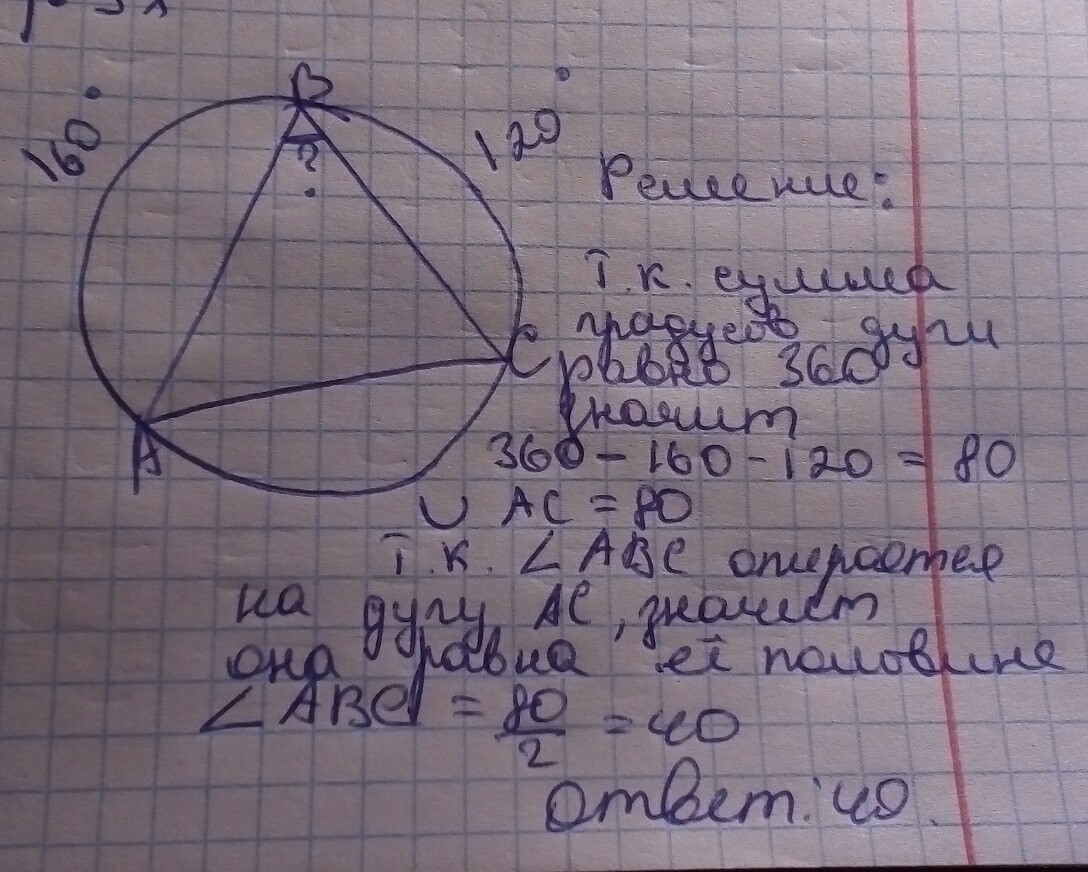 B
160°
120°
?
Решение:
Т.к. сумма
градусов дуги
C
равно 360
значит
A
360 - 160 - 120 = 80
∪ AC = 80
Т.к. ∠ABC опирается
на дугу AC, значит
она равна её половине
∠ABC = 80/2 = 40
Ответ: 40.